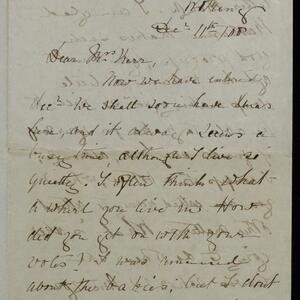 Dec 11th
Dear Mrs Kerr,
Now we have entered
Dec we shall soon have Xmas
here and it always seems a
busy time, although I live so
quietly. I often think what
a whirl you live in. How
did you get on with your
votes? I was
about the babies, but I don't